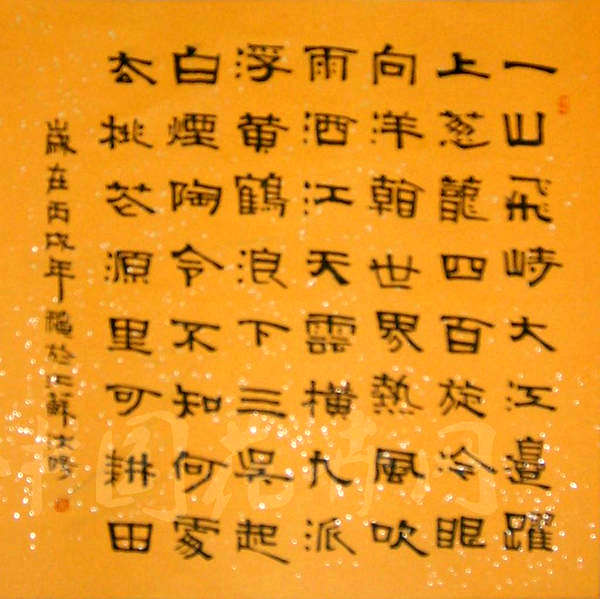 一山飛峙大江邊躍
上葱蘢四百旋冷眼
向洋看世界熱風吹
雨洒江天雲橫九派
浮黄鶴浪下三吳起
白煙陶令不知何處
去桃花源里可耕田
歲在丙戌年於江蘇